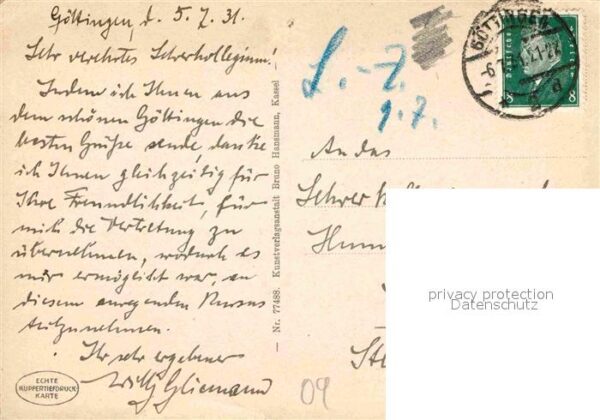 Göttingen, d. 5.7.31.
Sehr verehrtes Lehrerkollegium!
Indem ich Ihnen aus
dem schönen Göttingen die
besten Grüße sende, danke
ich Ihnen gleichzeitig für
Ihre Freundlichkeit, für
mich die Vertretung zu
übernehmen, wodurch es
mir ermöglicht war, an
diesem anregenden Kursus
teilzunehmen.
Ihr sehr ergebener
Willy
ECHTE
KUPPERTIEFDRUCK
KARTE
Nr. 77488. Kunstverlagsanstalt Bruno Hansmann, Kassel
9.7.
GÖTTINGEN
8
An das
Lehrerk
09
privacy protection
Datenschutz